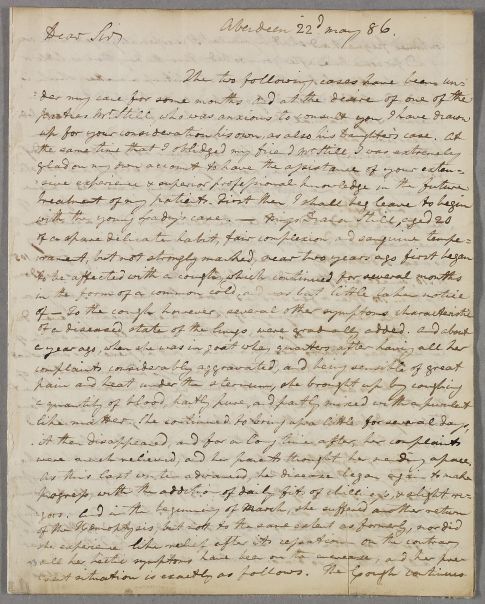 Aberdeen 22d may 86.
Dear Sir
The two following cases have been un=
der my care for some months and at the desire of one of the
patients Mr Still, who was anxious to consult you, I have drawn
up for your consideration his own, as also his Daughter's case. At
the same time that I obliged my friend Mr Still, I was extremely
glad on my own account to have the assistance of your exten=
sive experience & superior professional knowledge in the future
treatment of my patients. First then I shall beg leave to begin
with the young Lady's case. — Miss Still, aged 20
of a spare delicate habit, fair complexion and sanguine tempe=
rament, but not strongly marked, near two years ago first began
to be affected with a cough, which continued for several months
in the form of a common cold, and was but little taken notice
of — To the cough however, several other symptoms characteristic
of a diseased state of the lungs, were gradually added. And about
a year ago, when she was in goat whey quarters, after having all her
complaints considerably aggravated, and being sensible of great
pain and heat under the sternum, she brought up by coughing
a quantity of blood, partly pure, and partly mixed with a purulent
like matter. She continued to bring up a little for several days,
it then disappeared, and for a long time after, her complaints
were much relieved, and her parents thought her mending apace.
As this last winter advanced, the disease began again to make
progress, with the addition of daily fits of chillness & slight ri=
gors. And in the beginning of March, she suffered another return
of the Hæmoptysis, but not to the same extent as formerly, nor did
she experience like relief after its cessation. On the contrary
all her hectic symptoms have been on the increase, and her pre=
sent situation is exactly as follows. The Cough continues